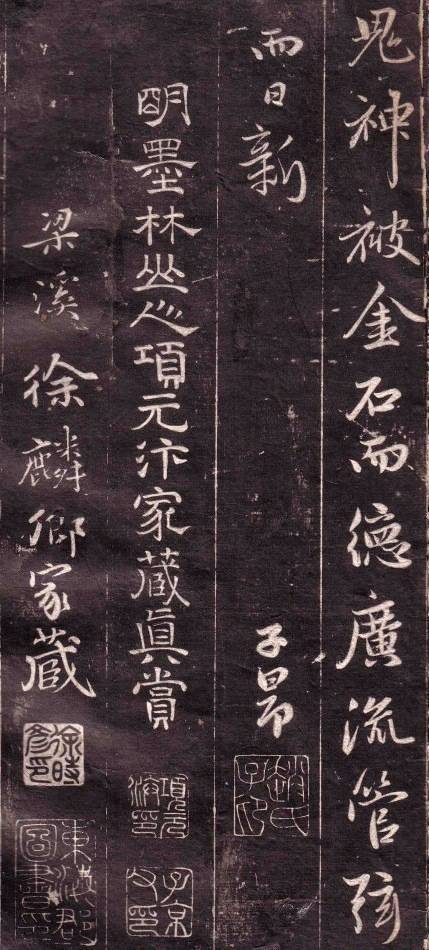 鬼神被金石而德廣流管弦
而日新
子昂
趙氏子印
明墨林山人項元汴家藏真賞
項元汴印
子京父印
梁溪徐麟卿家藏
東海郡圖書印